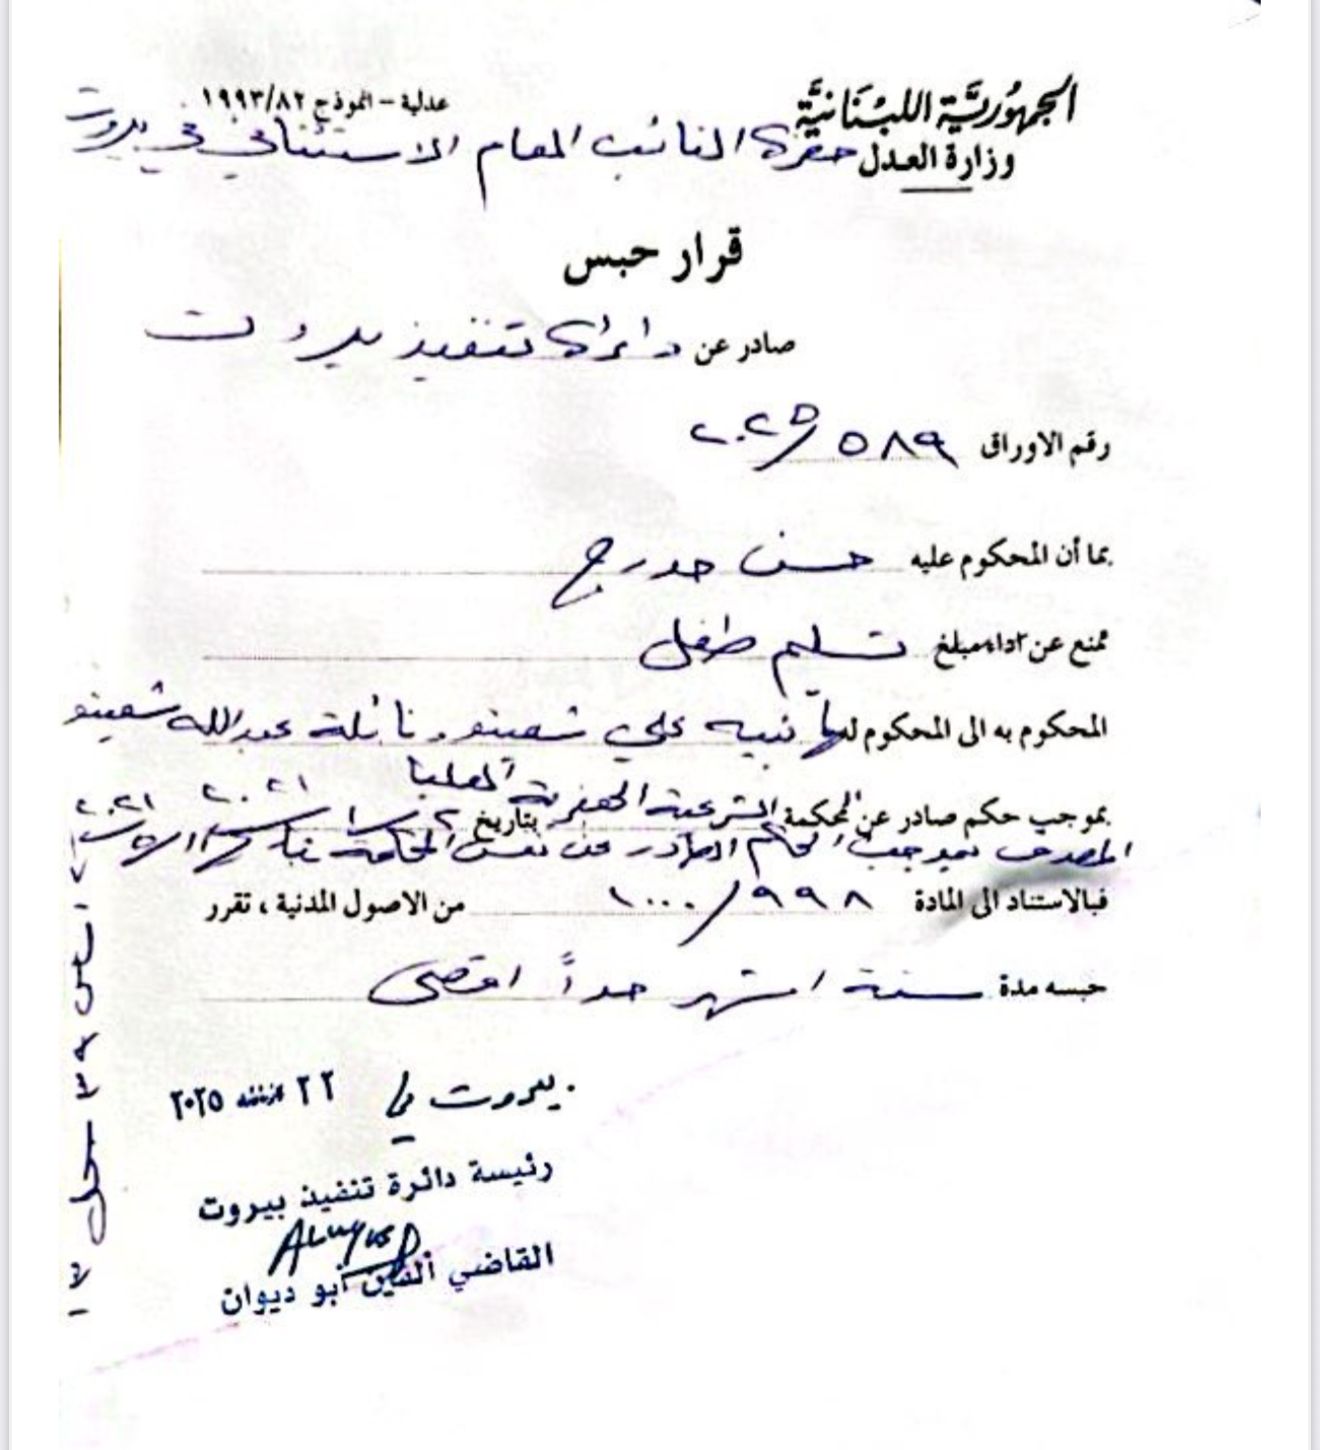 الجمهورية اللبنانية
وزارة العدل
عدلية - النموذج ١٩٩٣/٨٢
حضرة النائب العام الاستئنافي في بيروت
قرار حبس
صادر عن دائرة تنفيذ بيروت
رقم الاوراق ٥٨٩/٢٠٢٥
بما أن المحكوم عليه حسن حدرج
ممتنع عن تسليم طفل
المحكوم به الى المحكوم لهما نبيه علي شعيتو ونائلة عبدالله شعيتو
بموجب حكم صادر عن المحكمة الشرعية الجعفرية العليا بتاريخ ٢٠٢١
المصدق بموجب الحكم الصادر عن نفس المحكمة ٢٠٢١
فبالاستناد الى المادة ٩٩٨/١٠٠٠ من الاصول المدنية ، تقرر
حبسه مدة ستة اشهر حداً اقصى
بيروت في ٢٢ ٢٠٢٥
رئيسة دائرة تنفيذ بيروت
القاضي ألفين أبو ديوان